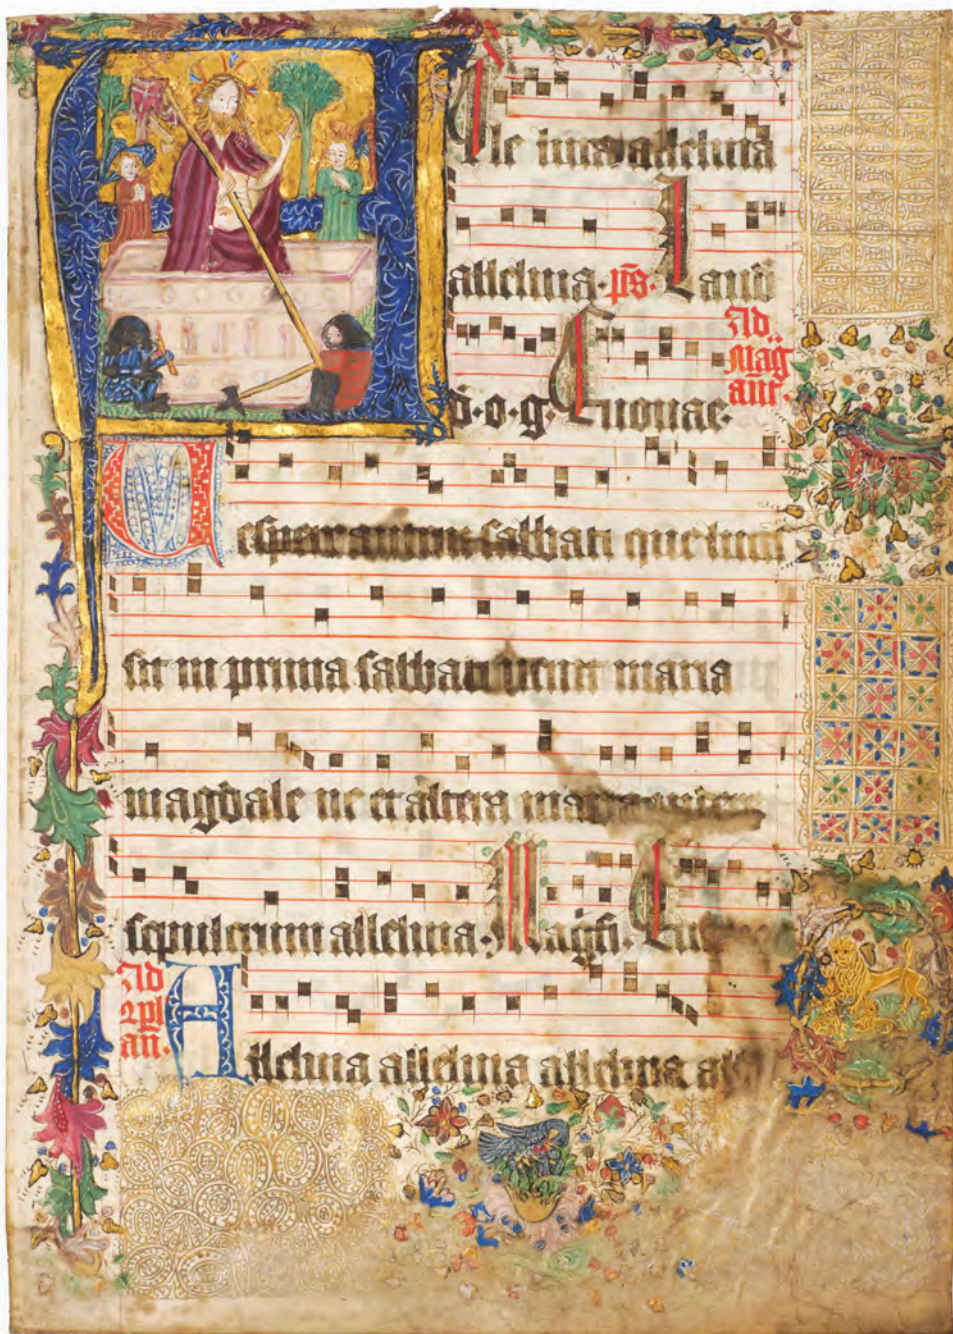 A
lle luya alleluia
alleluia. p̄s. Laudā
Ad
Mag̃
ant̃.
d. o. g. Euouae.
Vespere autem sabbati que luce
scit in prima sabbati venit maria
magdale ne et altera maria videre
sepulcrum alleluia. Magñ. Eu
Ad
9pl
añ.
Alleluia alleluia alleluia al